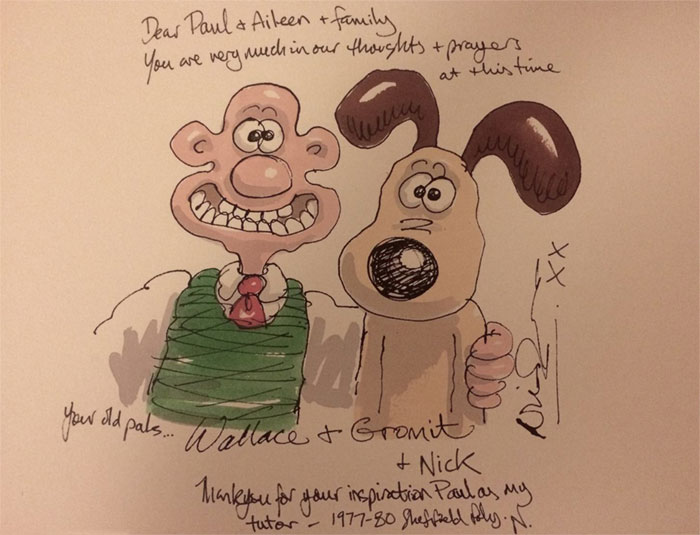 Dear Paul & Aileen + family
You are very much in our thoughts + prayers
at this time
Your old pals...
Wallace & Gromit
+ Nick
xx
Thankyou for your inspiration Paul as my
tutor – 1977-80 Sheffield Poly. N.